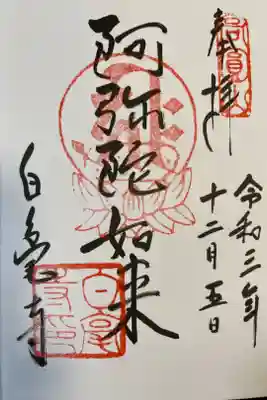 奉拝
令和三年
十二月五日
阿弥陀如来
白毫寺